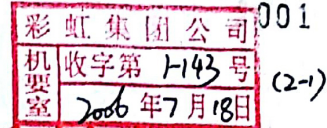 彩虹集团公司 001
机要室 收字第 1-143 号
2006 年 7 月 18 日 (2-1)